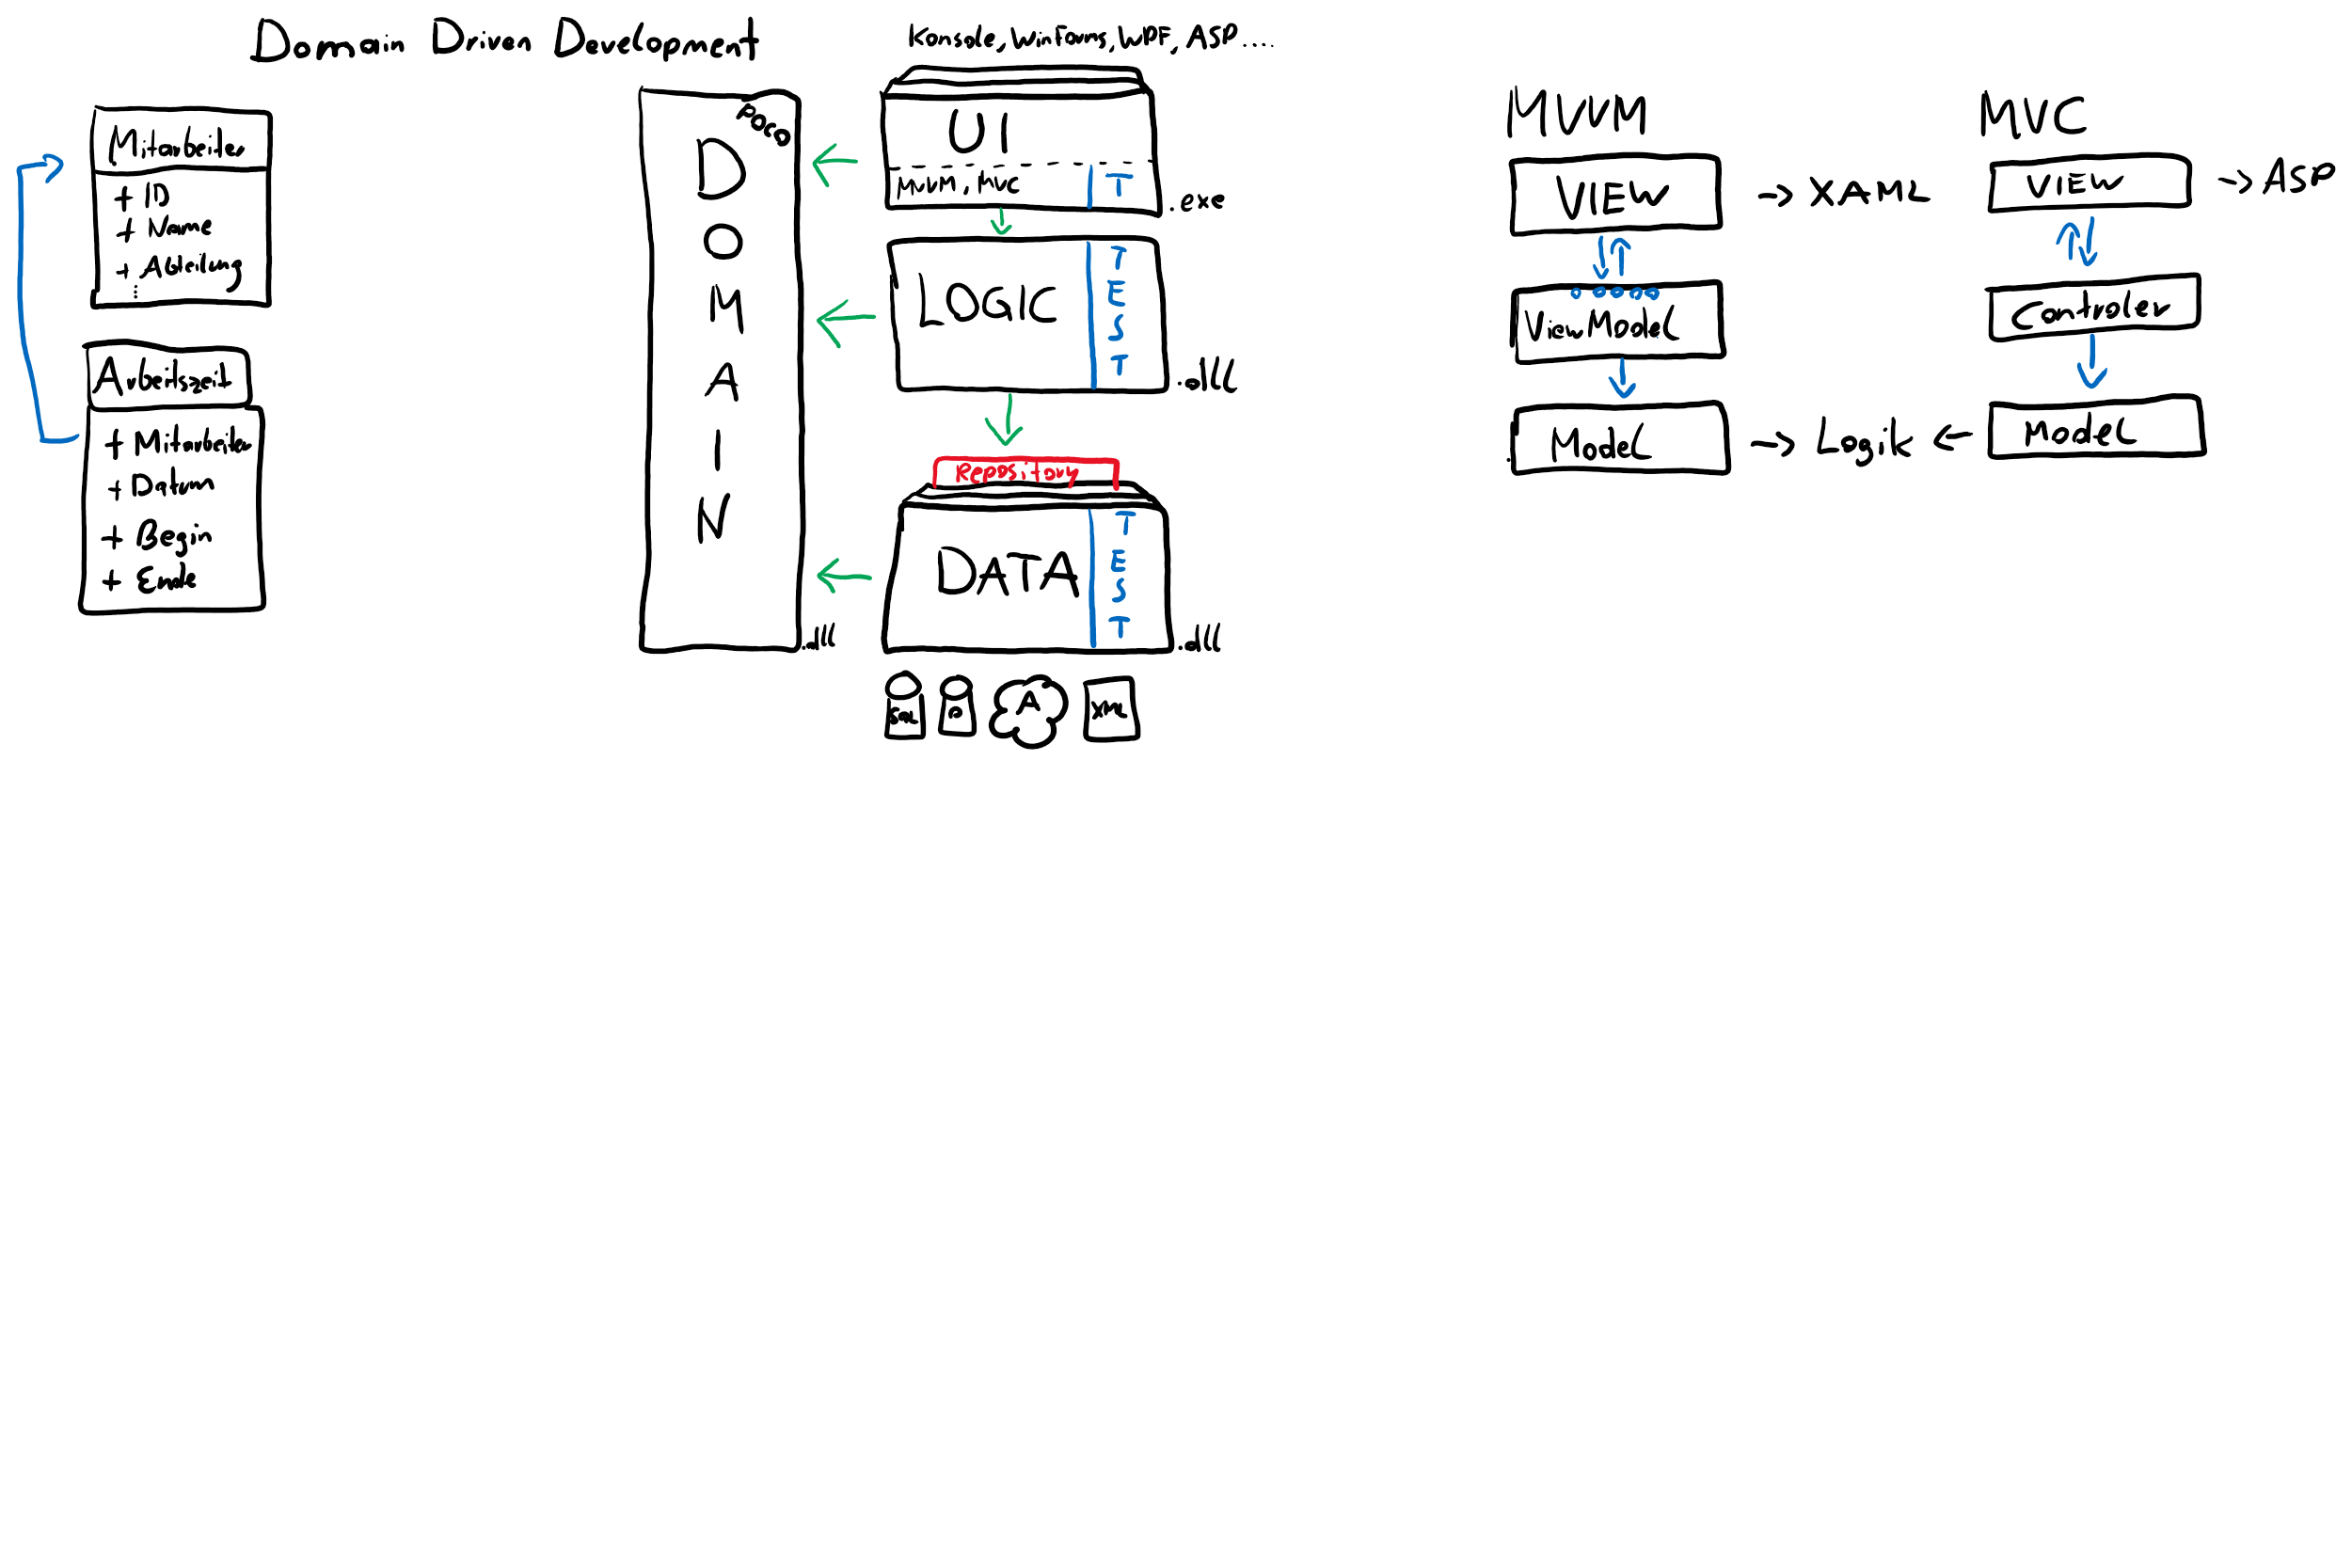 Domain Driven Development
Mitarbeiter
+ ID
+ Name
+ Abteilung
⋮
Arbeitszeit
+ Mitarbeiter
+ Datum
+ Begin
+ Ende
POCO
DOMAIN
.dll
Konsole, WinForms, WPF, ASP....
UI
MVVM, MVC
T
.exe
LOGIC
TEST
.dll
Repository
DATA
TEST
.dll
SQL
A
XML
MVVM
VIEW
→ XAML
ViewModel
Model
→ Logik ←
MVC
VIEW
→ ASP
Controler
Model